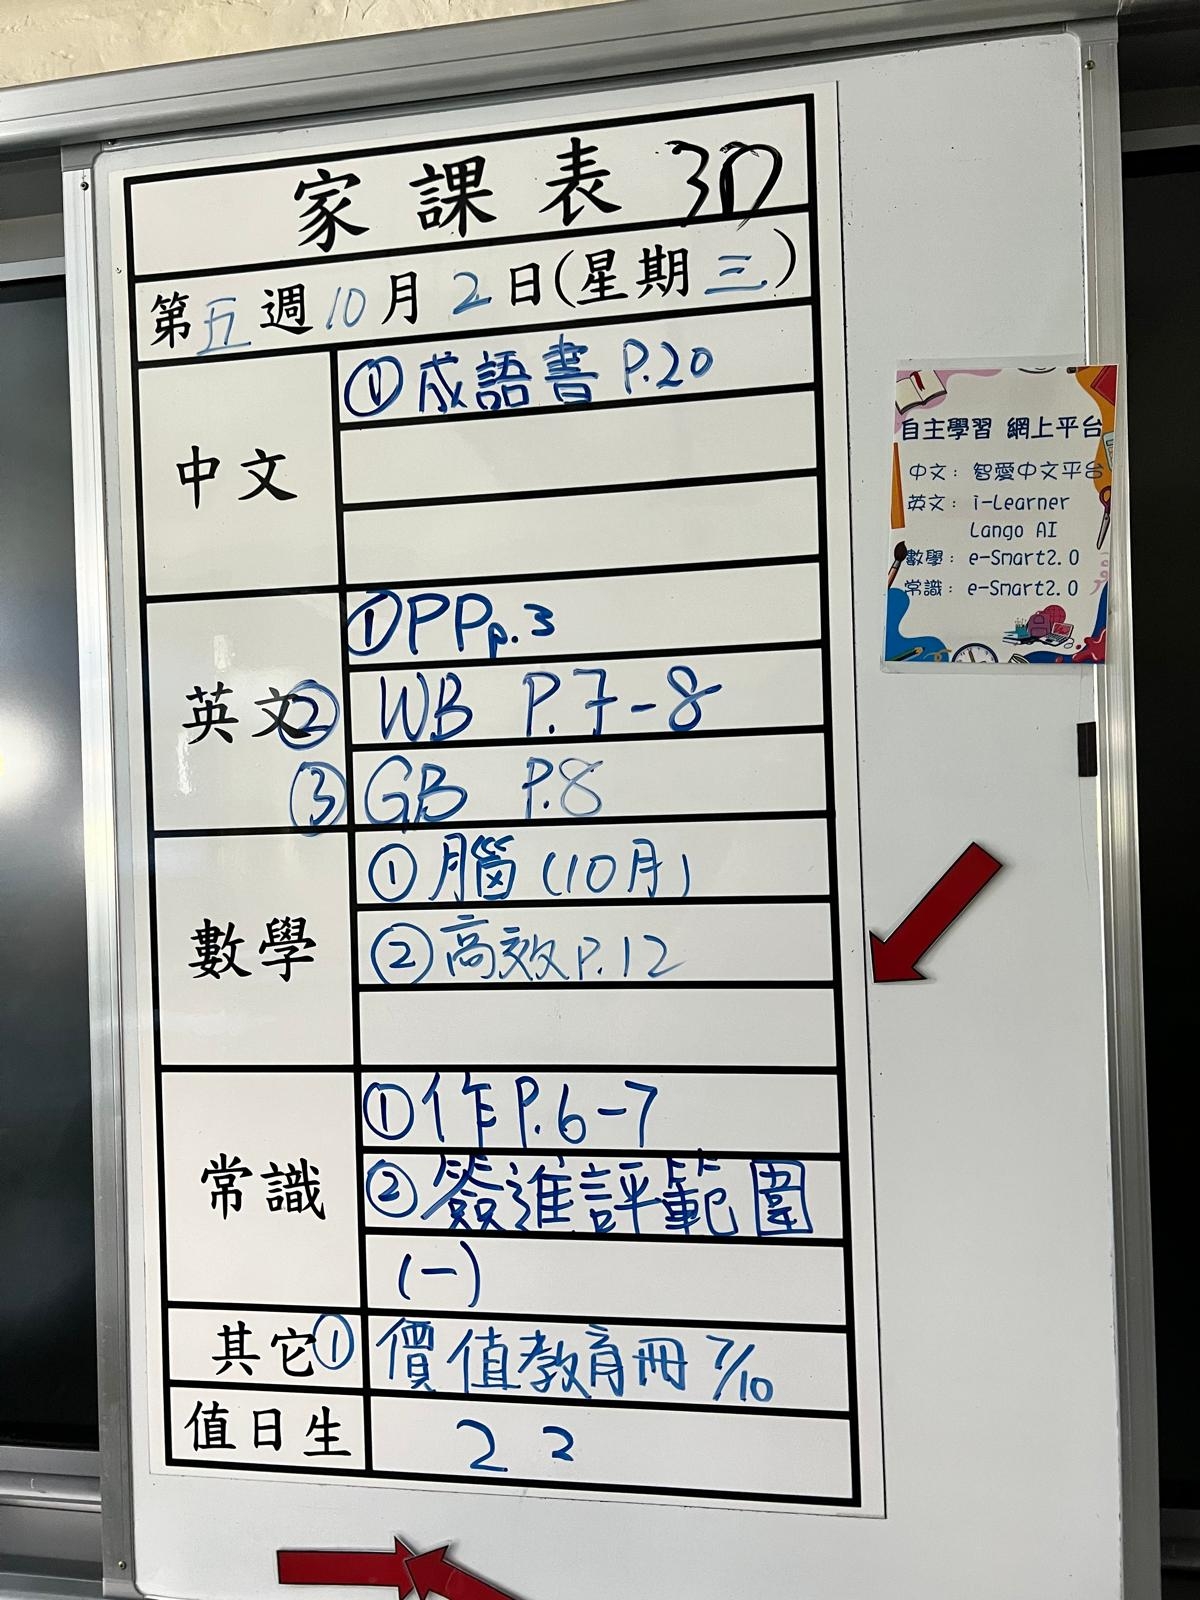 家課表 3D
第五週10月2日(星期三)
中文
①成語書 P.20
英文
①PP p.3
② WB P.7-8
③ GB P.8
數學
①腦(10月)
②高效P.12
常識
①作P.6-7
②簽進評範圍
(一)
其它
① 價值教育冊 7/10
值日生
22
自主學習 網上平台
中文: 智愛中文平台
英文: i-Learner
Lango AI
數學: e-Smart2.0
常識: e-Smart2.0